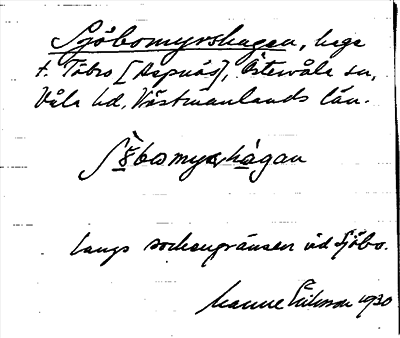 Sjöbomyrshagen, hage
t. Töbo [Aspnäs], Östervåla sn,
Våla hd, Västmanlands län.
längs sockengränsen vid Sjöbo.
Manne Eriksson 1930